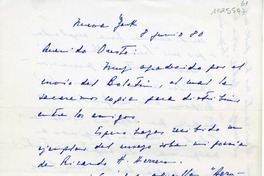 61
1125597
Nueva York
8 junio 80
Querido Oreste:
Muy agradecido por el
envio del Boletín, al cual le
sacaremos copia para distribuir
entre los amigos.
Espero hayas recibido un
ejemplar del ensayo sobre mi poesía
de Ricardo H. Herrera.